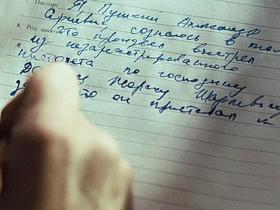 Паспорт
Я Пушкин Александр
Сергеевич сознаюсь в том
8. Род занятий
что произвел выстрел
из незарегистрированного
пистолета по господину
Жоржу Шарлевичу
за то он приставал к